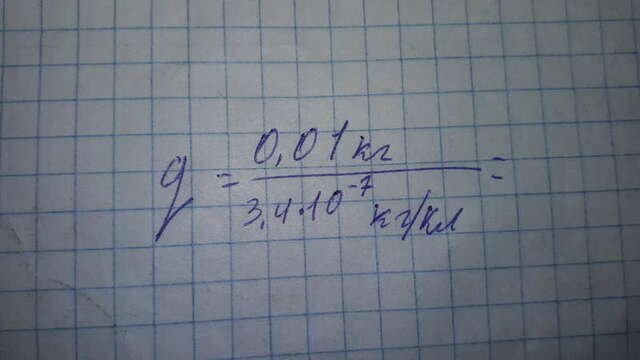 q = 0,01 кг / 3,4·10⁻⁷ кг/кл =